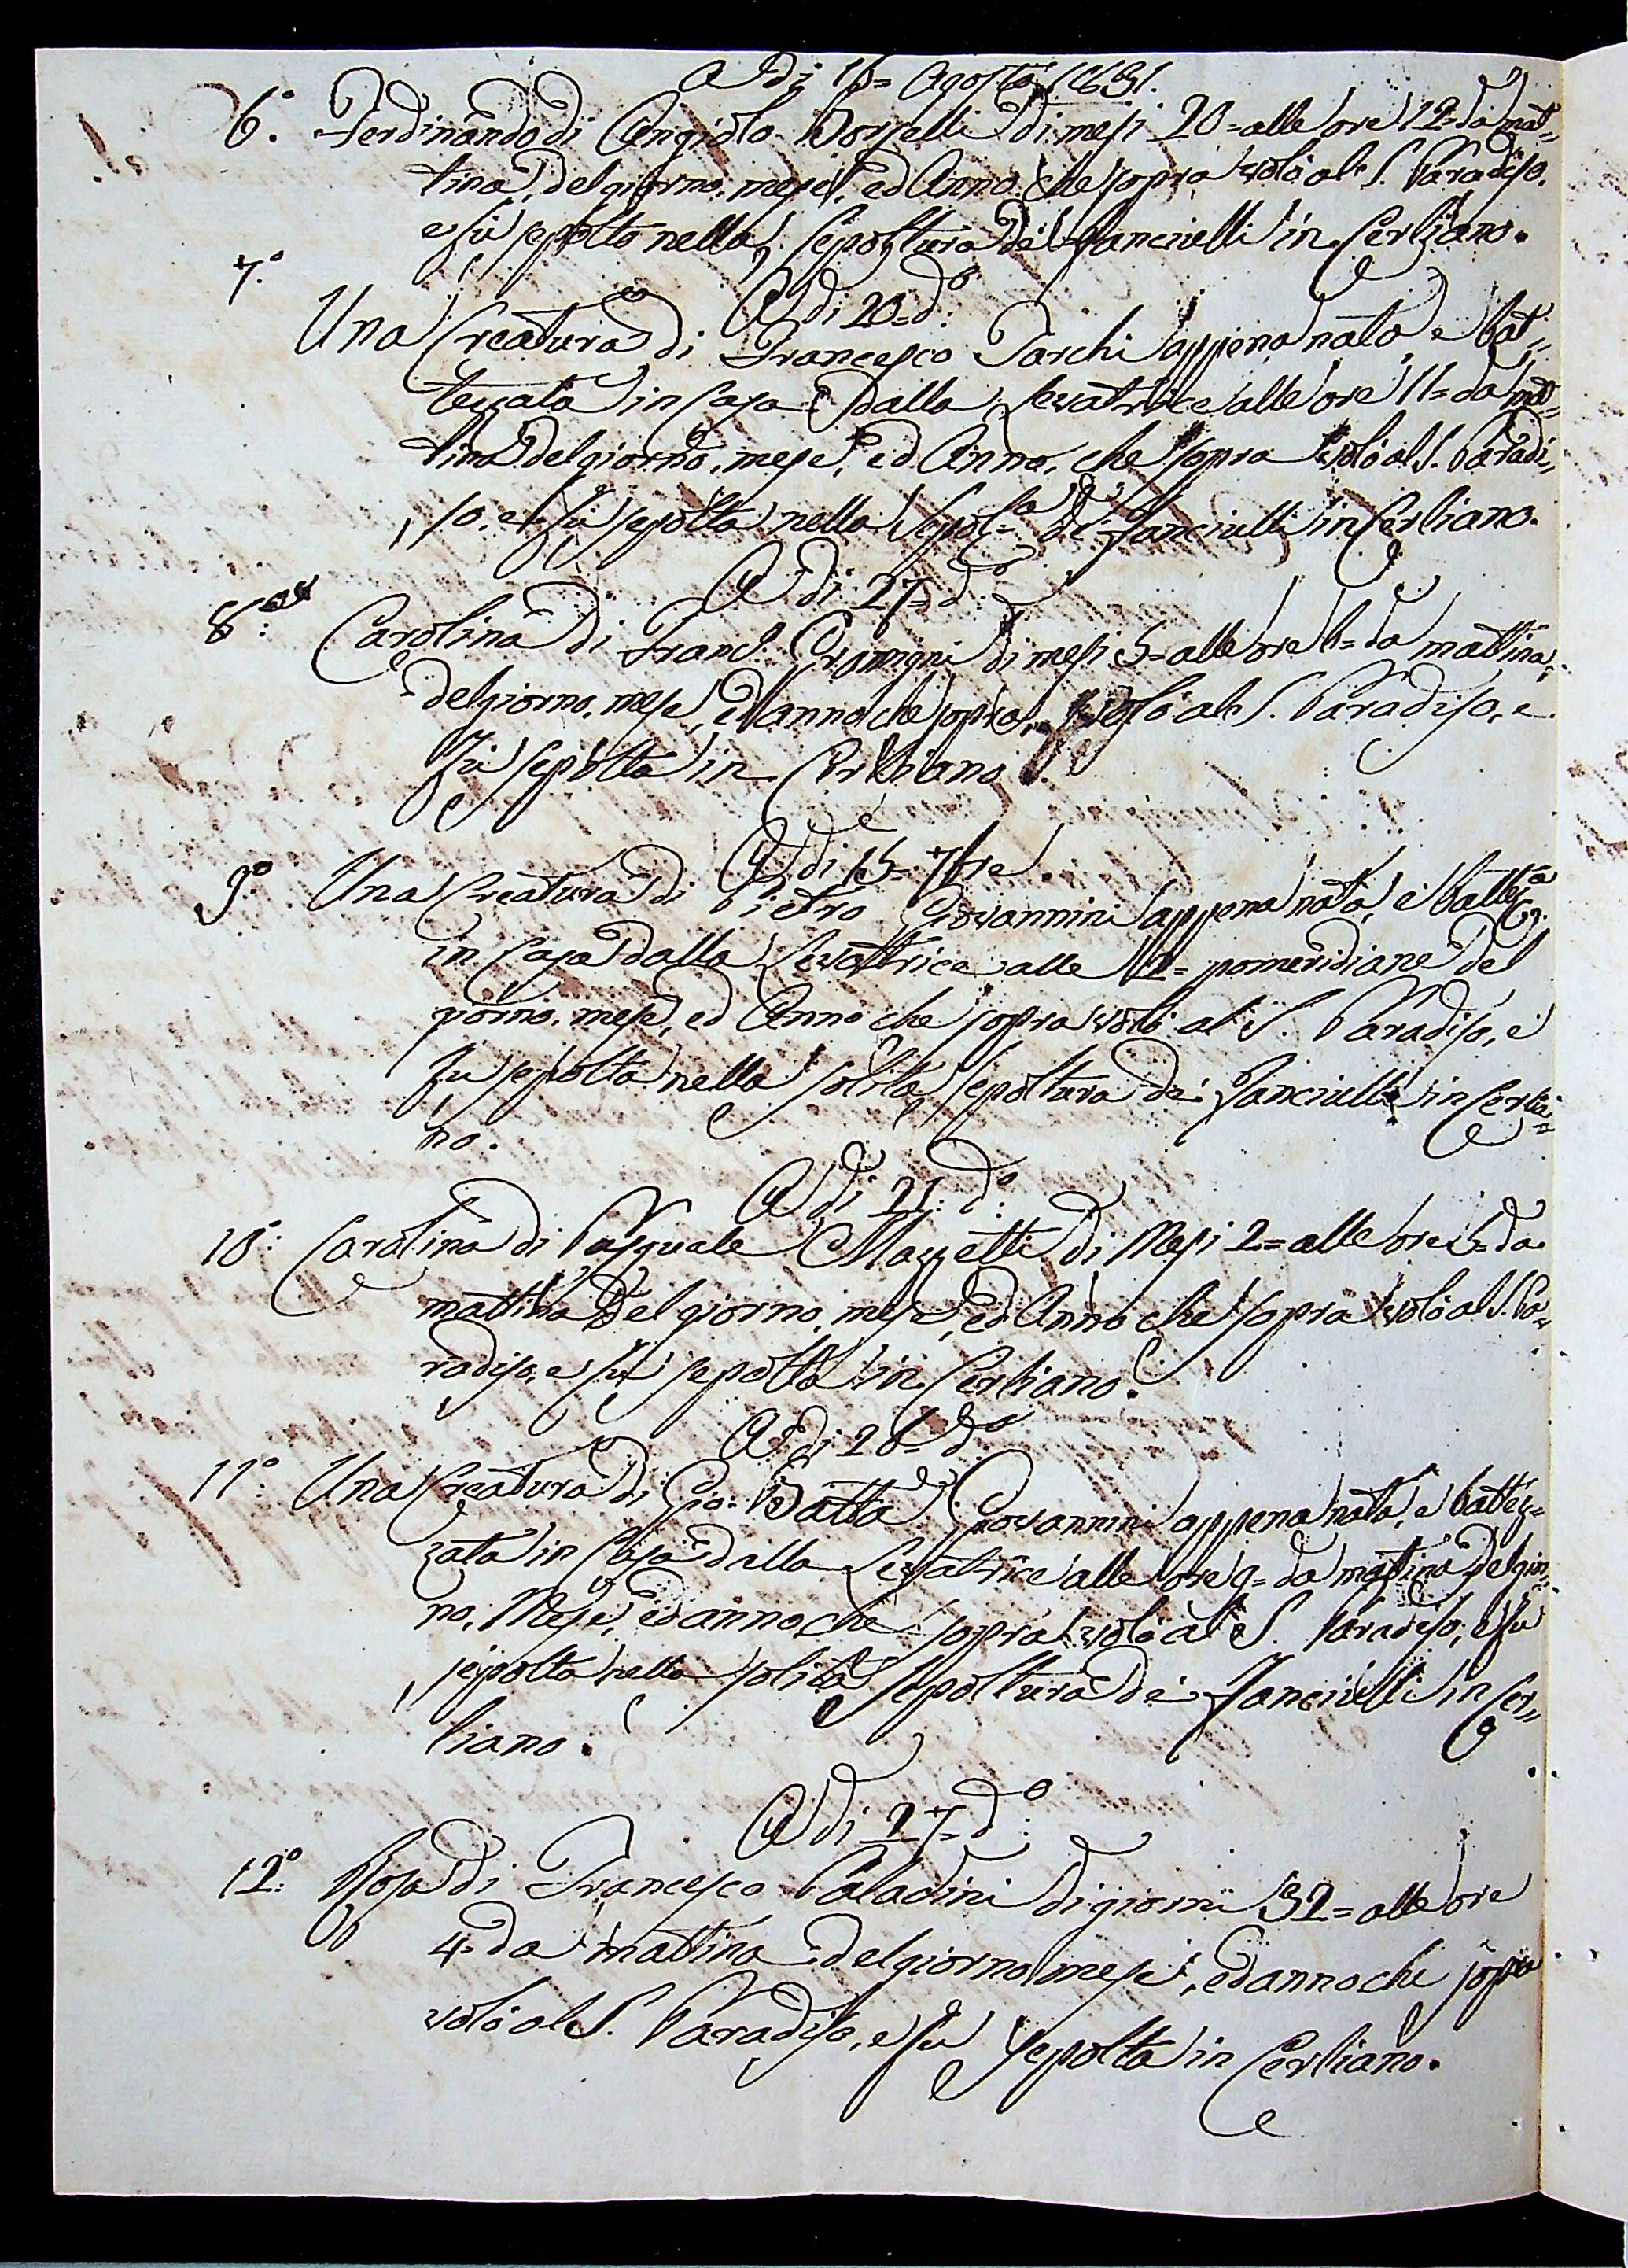 A di 16= Agosto 1831.
6.° Ferdinando di Angiolo Borselli di mesi 20= alle ore 12= da mat=
tina, del giorno, mese, ed Anno che sopra volò al S. Paradiso.
e fù sepolto nella Sepoltura de' Fanciulli in Cerliano.
7.°
A di 20= d.°
Una Creatura di Francesco Tarchi appena nata e bat=
tezzata in Casa dalla Levatrice alle ore 11= da mat=
tina del giorno, mese, ed Anno, che sopra volò al S. Paradi=
so, e fù sepolta nella Sepol.ra de' Fanciulli in Cerliano.
A di 27= d.°
8.° Carolina di Franc.° di mesi 5= alle ore 6= da mattina,
del giorno, mese, ed anno che sopra, volò al S. Paradiso, e
fù sepolta in Cerliano.
A di 15= 7bre.
9.° Una Creatura di Pietro Giovannini appena nata, e battez.ta
in Casa dalla Levatrice alle 12= pomeridiane del
giorno, mese, ed Anno che sopra volò al S. Paradiso, e
fu sepolta nella solita sepoltura de' Fanciulli in Cerlia=
no.
A di 21: d.°
10.° Carolina di Pasquale Mazzetti di Mesi 2= alle ore 5= da
mattina del giorno, mese, ed Anno che sopra volò al S. Pa=
radiso, e fù sepolta in Cerliano.
A di 26= d.°
11.° Una Creatura di Gio: Batta Giovannini appena nata, e battez=
zata in Casa dalla Levatrice alle ore 9= da mattina del gior=
no, Mese, ed anno che sopra volò al S. Paradiso, e fu
sepolta nella solita sepoltura de' Fanciulli in Cer=
liano.
A di 27= d.°
12.° Rosa di Francesco Paladini di giorni 32= alle ore
4= da mattina del giorno, mese, ed anno che sopra
volò al S. Paradiso, e fu sepolta in Cerliano.